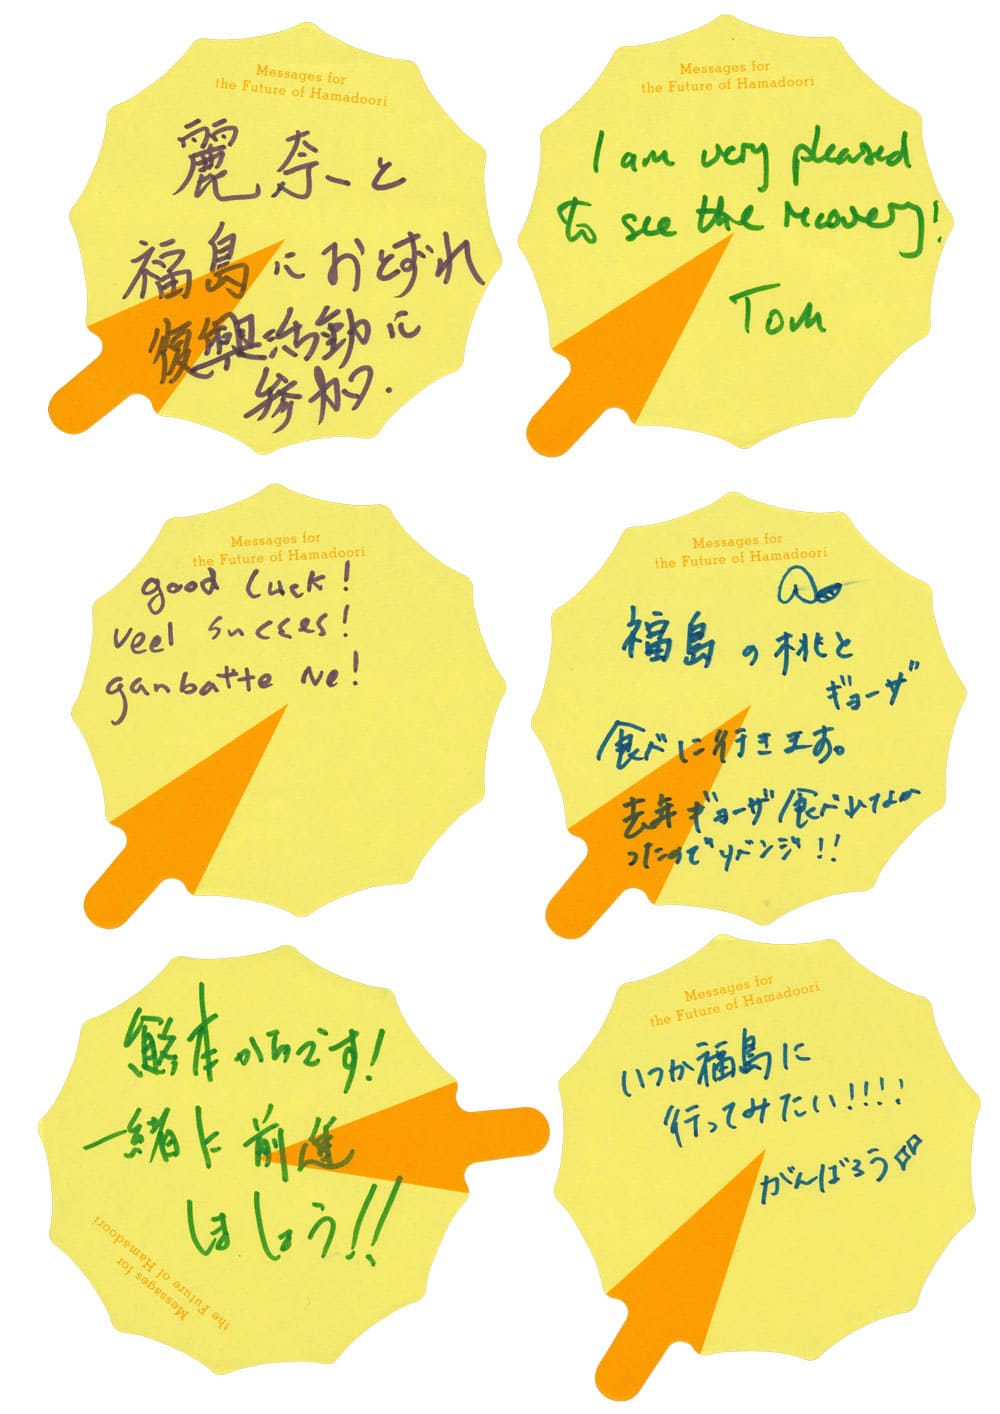 Messages for
the Future of Hamadoori
麗奈と
福島におとずれ
復興活動に
参加.
Messages for
the Future of Hamadoori
I am very pleased
to see the recovery!
Tom
Messages for
the Future of Hamadoori
good luck!
veel succes!
ganbatte ne!
Messages for
the Future of Hamadoori
福島の桃と
ギョーザ
食べに行きます。
去年ギョーザ食べれなか
ったのでリベンジ!!
熊本からです!
一緒に前進
しましょう!!
Messages for
the Future of Hamadoori
Messages for
the Future of Hamadoori
いつか福島に
行ってみたい!!!!
がんばろう